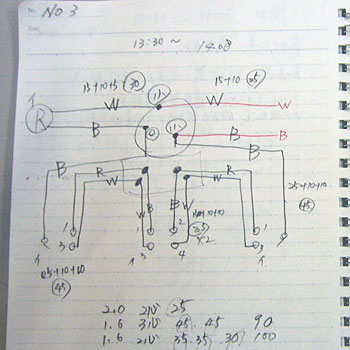 NO 3
13:30 ~ 14:08
15+10+5 30
15+10 25
W
W
W
R
B
B
B
B
B
R
W
R
W
W B
B W
25+10+10
45
1
3
1
3
2
4
1
3
35
×2
25+10+10
45
2.0 2心 25
1.6 3心 45. 45 90
1.6 2心 35. 35. 30 100